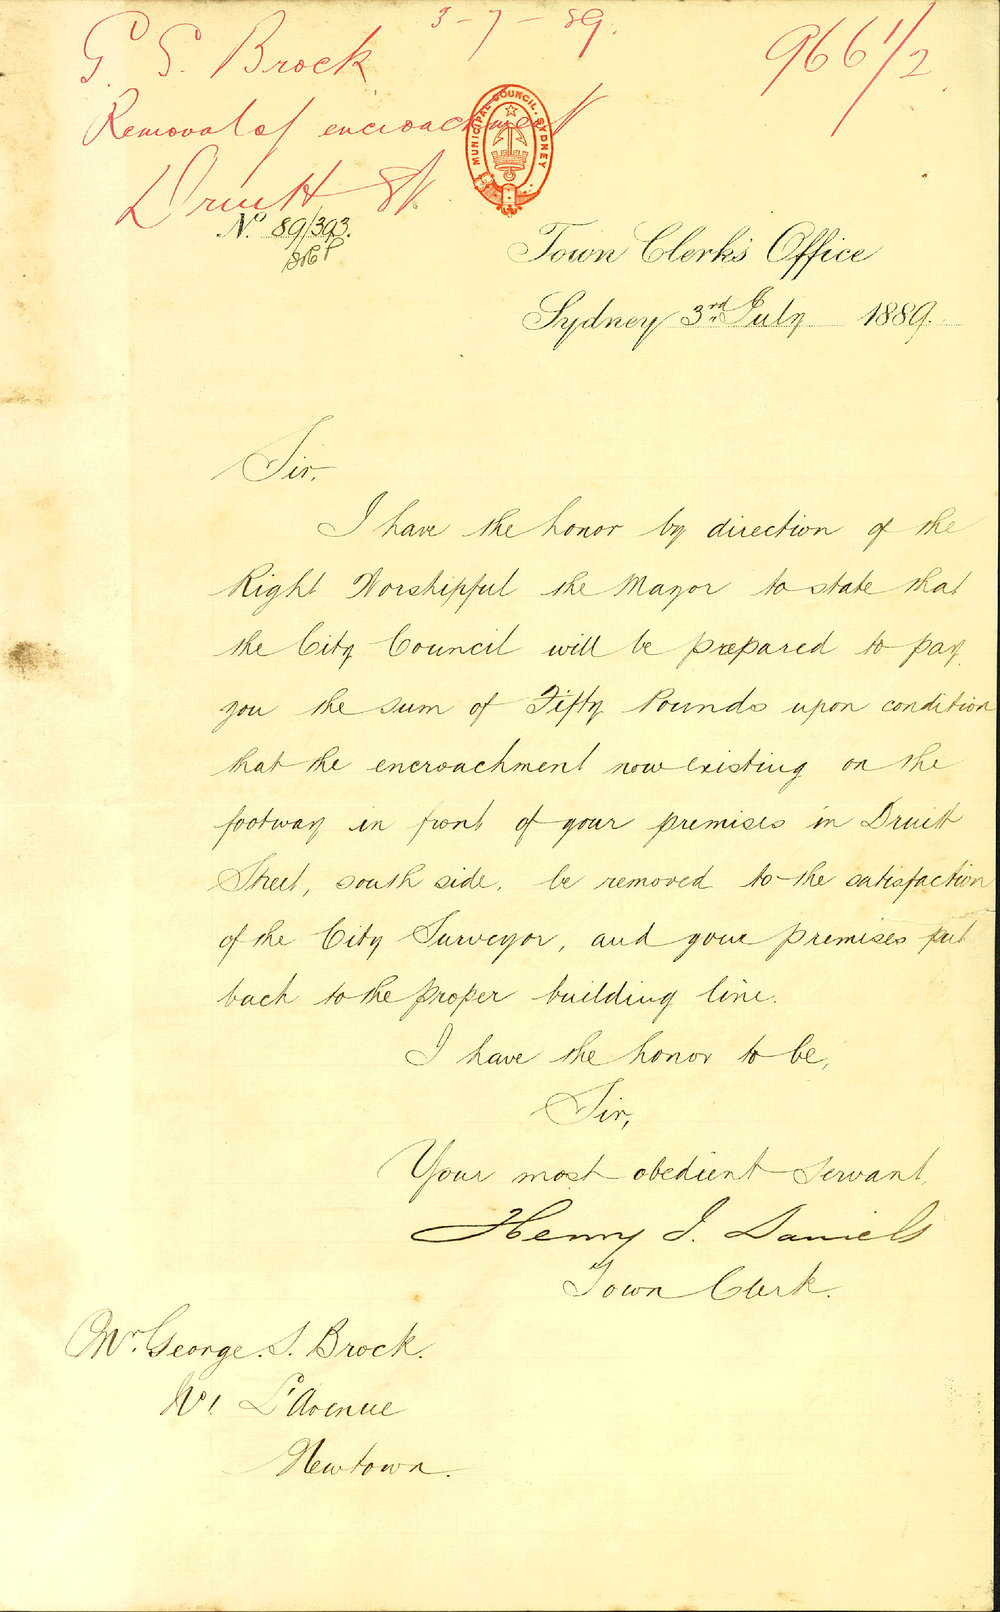 G. S. Brock 3-7-89. 966 1/2
Removal of encroachment
Druitt St.
MUNICIPAL COUNCIL. SYDNEY
No. 89/393.
Town Clerk's Office
Sydney 3rd July 1889.
Sir,
I have the honor by direction of the
Right Worshipful the Mayor to state that
the City Council will be prepared to pay
you the sum of Fifty Pounds upon condition
that the encroachment now existing on the
footway in front of your premises in Druitt
Street, south side, be removed to the satisfaction
of the City Surveyor, and your premises put
back to the proper building line.
I have the honor to be,
Sir,
Your most obedient servant,
Henry J. Daniels
Town Clerk.
Mr. George. S. Brock.
No 1 L'Avenue
Newtown.